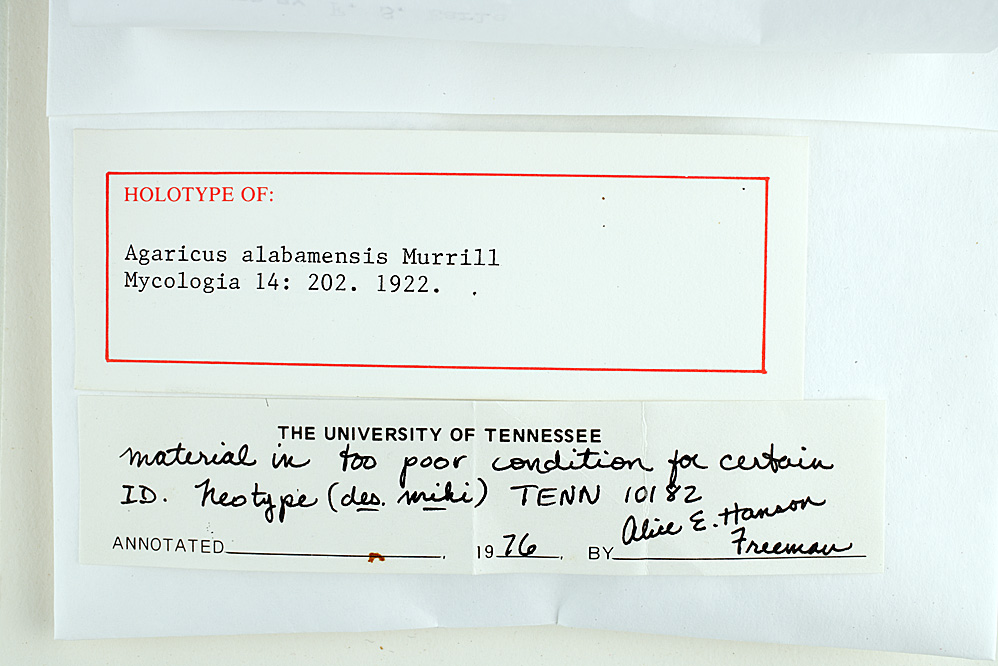 HOLOTYPE OF:
Agaricus alabamensis Murrill
Mycologia 14: 202. 1922.
THE UNIVERSITY OF TENNESSEE
material in too poor condition for certain
ID. Neotype (des. mihi) TENN 10182
Alice E. Hanson
ANNOTATED , 1976, BY Freeman